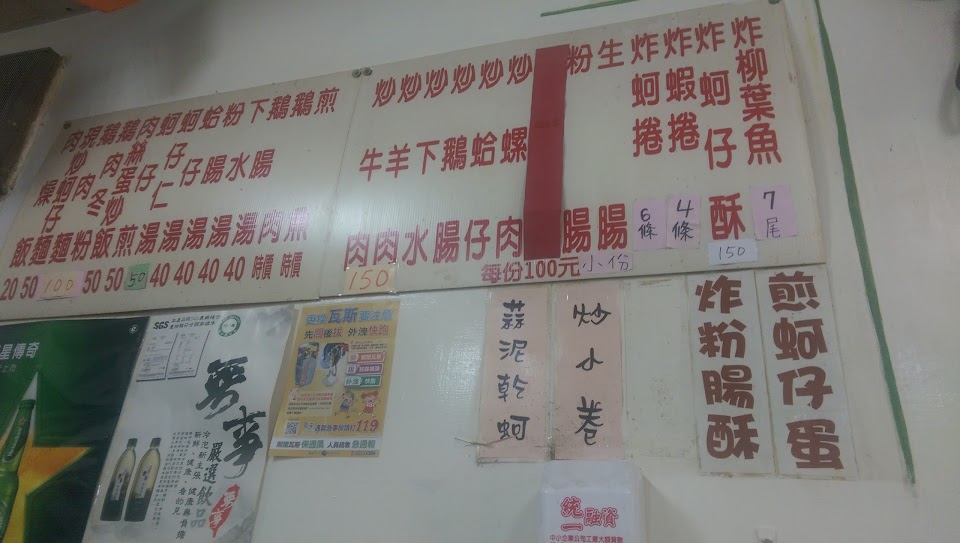 肉燥飯
現炒蚵仔麵
鵝肉麵
鵝肉冬粉
肉絲蛋炒飯
蚵仔煎
蚵仔仁湯
蛤仔湯
粉腸湯
下水湯
鵝腸湯
鵝肉
煎魚
20 50 100 50 50 50 40 40 40 40 時價 時價
炒牛肉
炒羊肉
炒下水
炒鵝腸
炒蛤仔
炒螺肉
粉腸
生腸
炸蚵捲 6條
炸蝦捲 4條
炸蚵仔酥 150
炸柳葉魚 7尾
150
每份100元 小份
蒜泥乾蚵
炒小卷
炸粉腸酥
煎蚵仔蛋
星傳奇
SGS
無事
嚴選飲品
冷泡新主張
瓦斯
外洩快跑
119
統一融資